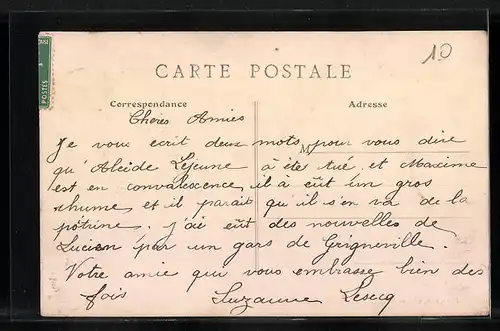 10
POSTES
CARTE POSTALE
Correspondance
Adresse
Chères Amies
Je vous ecrit deux mots pour vous dire
M
qu'Alcide Lejeune à été tué, et Maxime
est en convalescence, il à eût un gros
rhume, et il parait qu'il s'en va de la
pôtrine. j'ai eût des nouvelles de
Lucien par un gars de Grigneville.
Votre amie qui vous embrasse bien des
fois Suzanne Lesecq